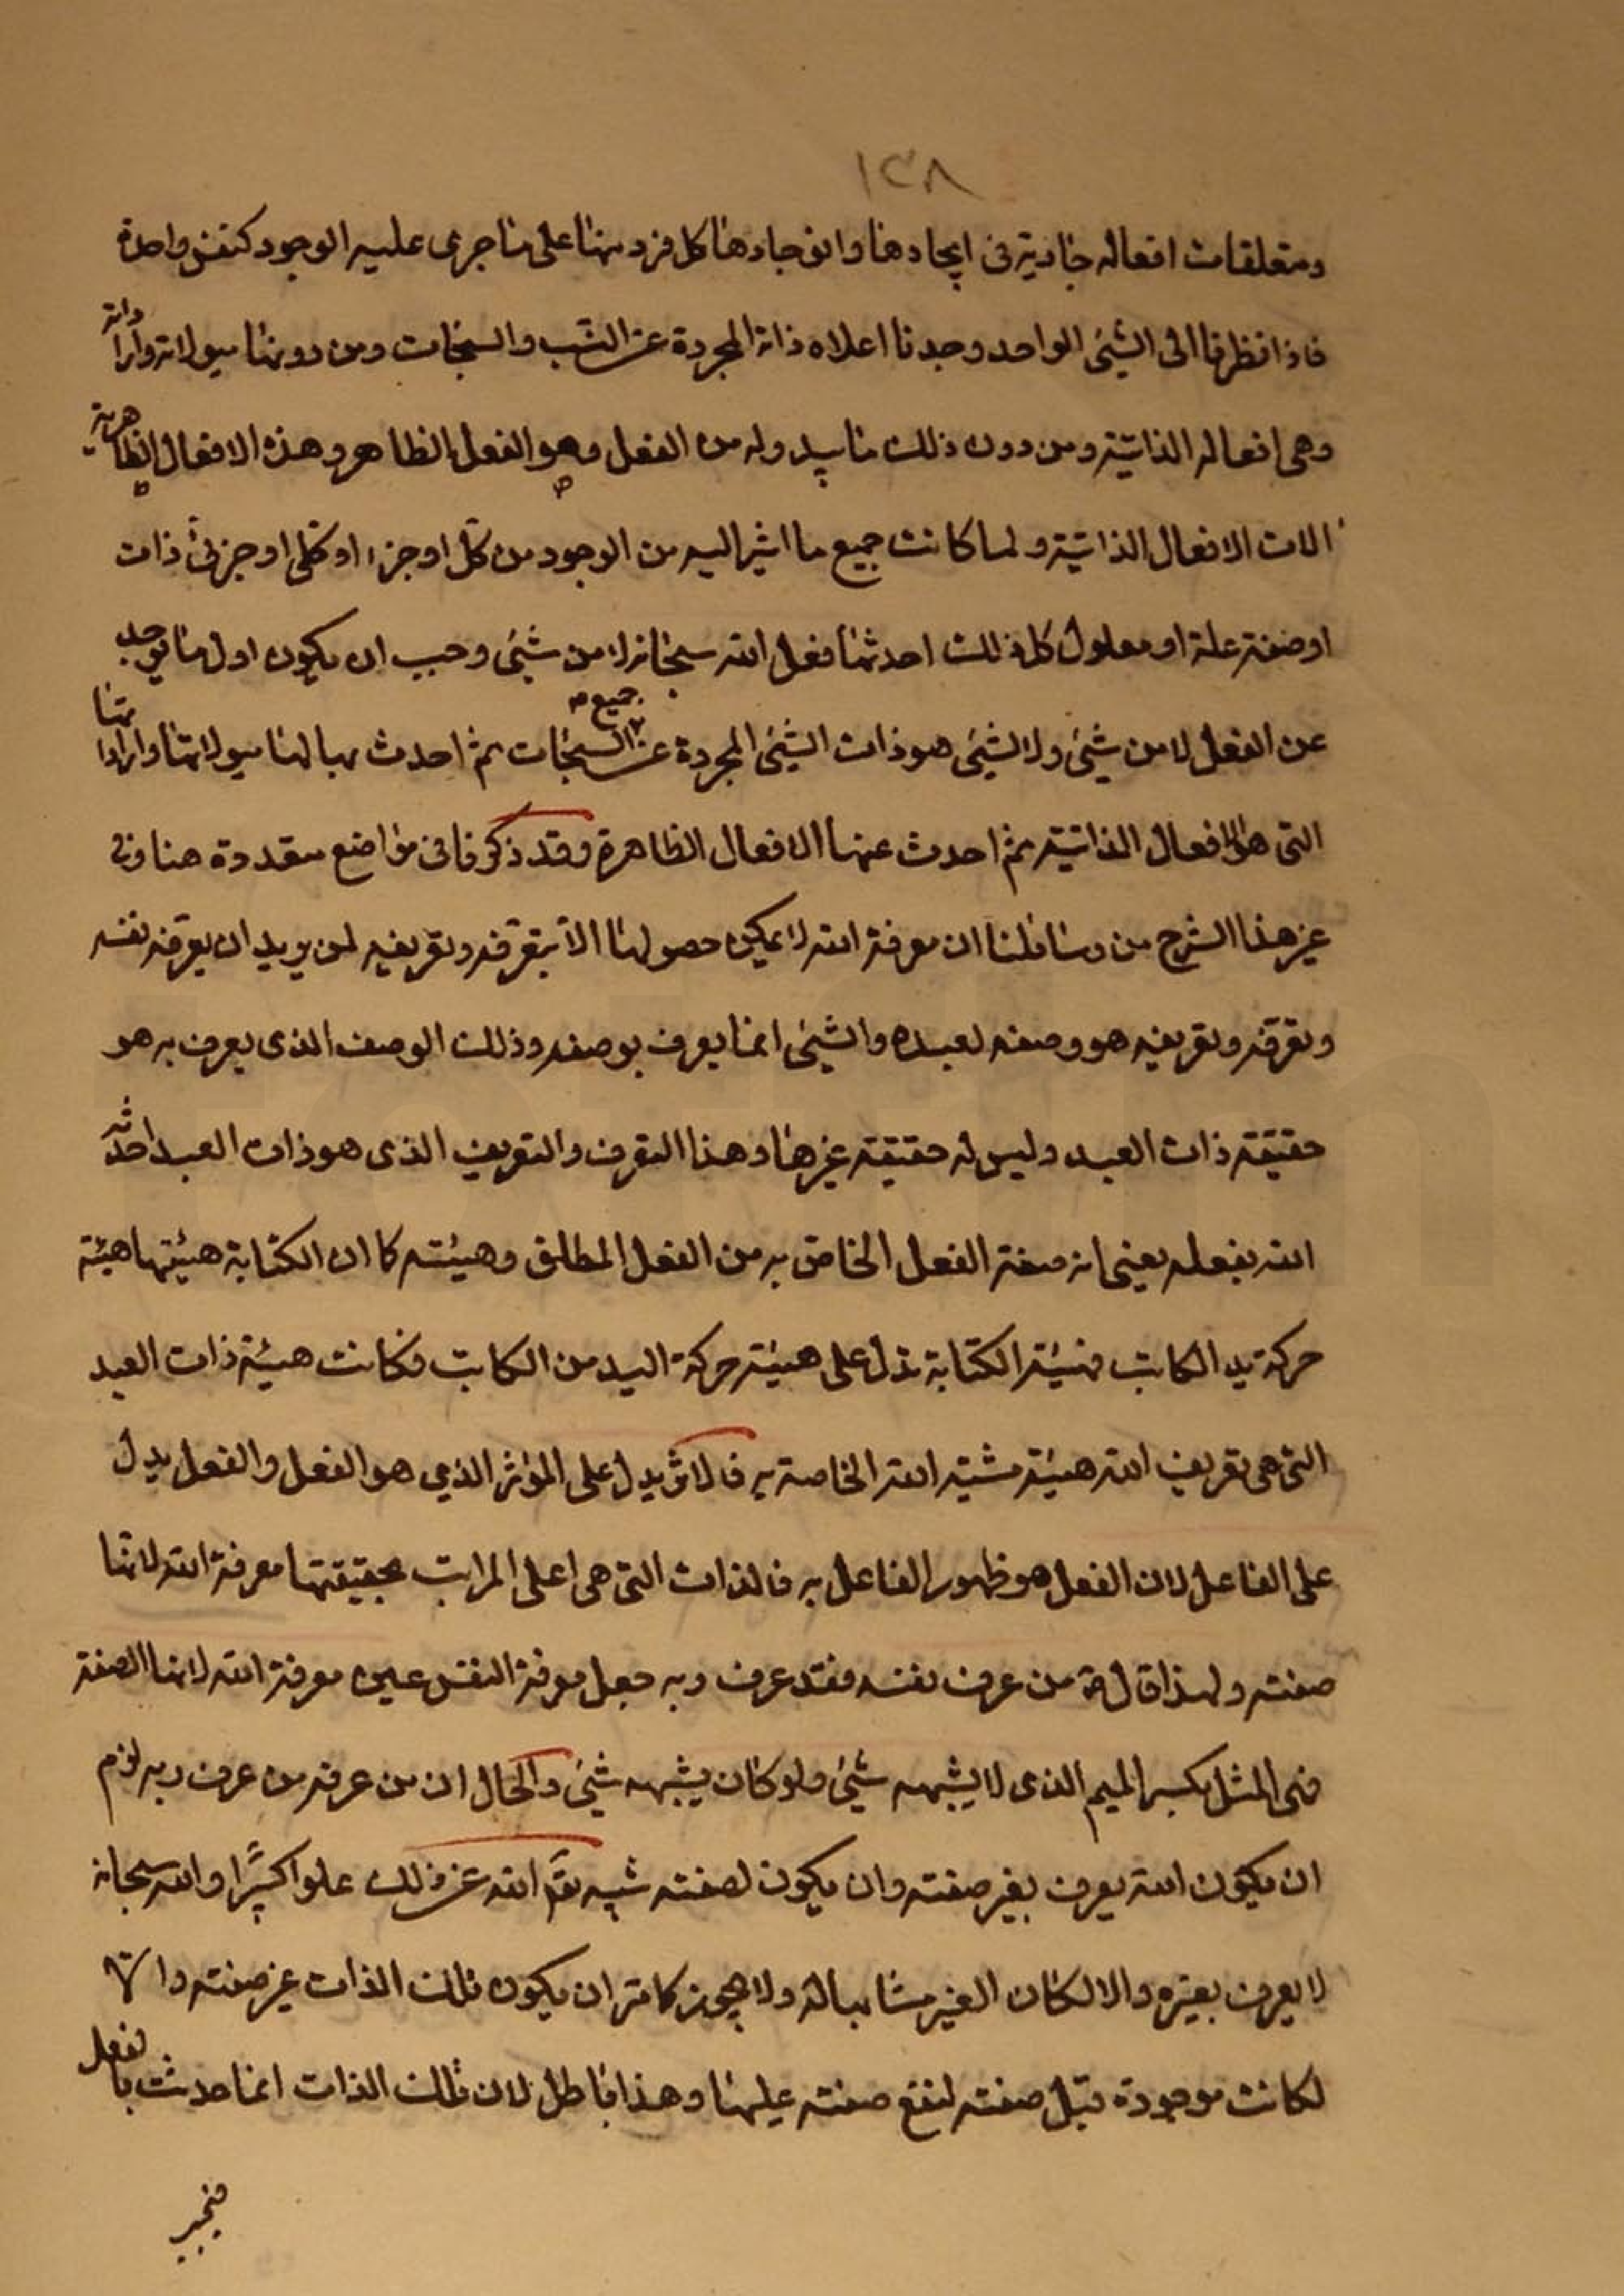 ١٣٨
ومتعلقات افعاله جارية فى ايجادها وانوجادها كل فرد منها على ما جرى عليه الوجود كنفس واحدة
فاذا نظرنا الى الشئ الواحد وجدنا اعلاه ذاته المجردة عن النسب والسبحات ومن دونها ميولاته وارا داته
وهى افعاله الذاتية ومن دون ذلك ما يبدو له من الفعل وهو الفعل الظاهر وهذه الافعال الظاهرية
الات الافعال الذاتية ولما كانت جميع ما اشير اليه من الوجود من كل او جزء او كلى او جزئى ذات
او صفة علة او معلول كل ذلك احدثها فعل الله سبحانه لا من شئ وجب ان يكون اول ما يوجد
عن الفعل لا من شئ ولا لشئ هو ذات الشئ المجردة عن جميع السبحات ثم احدث بها لها ميولاتها واراداتها
التى هى الافعال الذاتية ثم احدث عنها الافعال الظاهرة وقد ذكرنا فى مواضع متعددة هنا وفى
غير هذا الشرح من رسائلنا ان معرفة الله لا يمكن حصولها الا بتعرفه وتعريفه لمن يريد ان يعرفه نفسه
وتعرفه وتعريفه هو وصفه لعبده والشئ انما يعرف بوصفه وذلك الوصف الذى يعرف به هو
حقيقة ذات العبد وليس له حقيقة غيرها وهذا التعرف والتعريف الذى هو ذات العبد احدثه
الله بفعله يعنى انه صفة الفعل الخاص به من الفعل المطلق وهيئته كما ان الكتابة هيئتها هيئة
حركة يد الكاتب فهيئة الكتابة تدل على هيئة حركة اليد من الكاتب فكانت هيئة ذات العبد
التى هى تعريف الله هيئة مشية الله الخاصة به فالاثر يدل على المؤثر الذى هو الفعل والفعل يدل
على الفاعل لان الفعل هو ظهور الفاعل به فالذات التى هى اعلى المراتب بحقيقتها معرفة الله لانها
صفته ولهذا قال ع من عرف نفسه فقد عرف ربه جعل معرفة النفس عين معرفة الله لانها الصفة
فهى المثل بكسر الميم الذى لا يشبهه شئ ولو كان يشبهه شئ والحال ان من عرفه من عرف ربه لزم
ان يكون الله يعرف بغير صفته وان يكون لصفته شبيه تعالى الله عن ذلك علوا كبيرا والله سبحانه
لا يعرف بغيره والا لكان الغير مشابها له ولا يجوز كما مر ان يكون تلك الذات غير صفته والا
لكانت موجودة قبل صفته لتقع صفته عليها وهذا باطل لان تلك الذات انما حدثت بالفعل